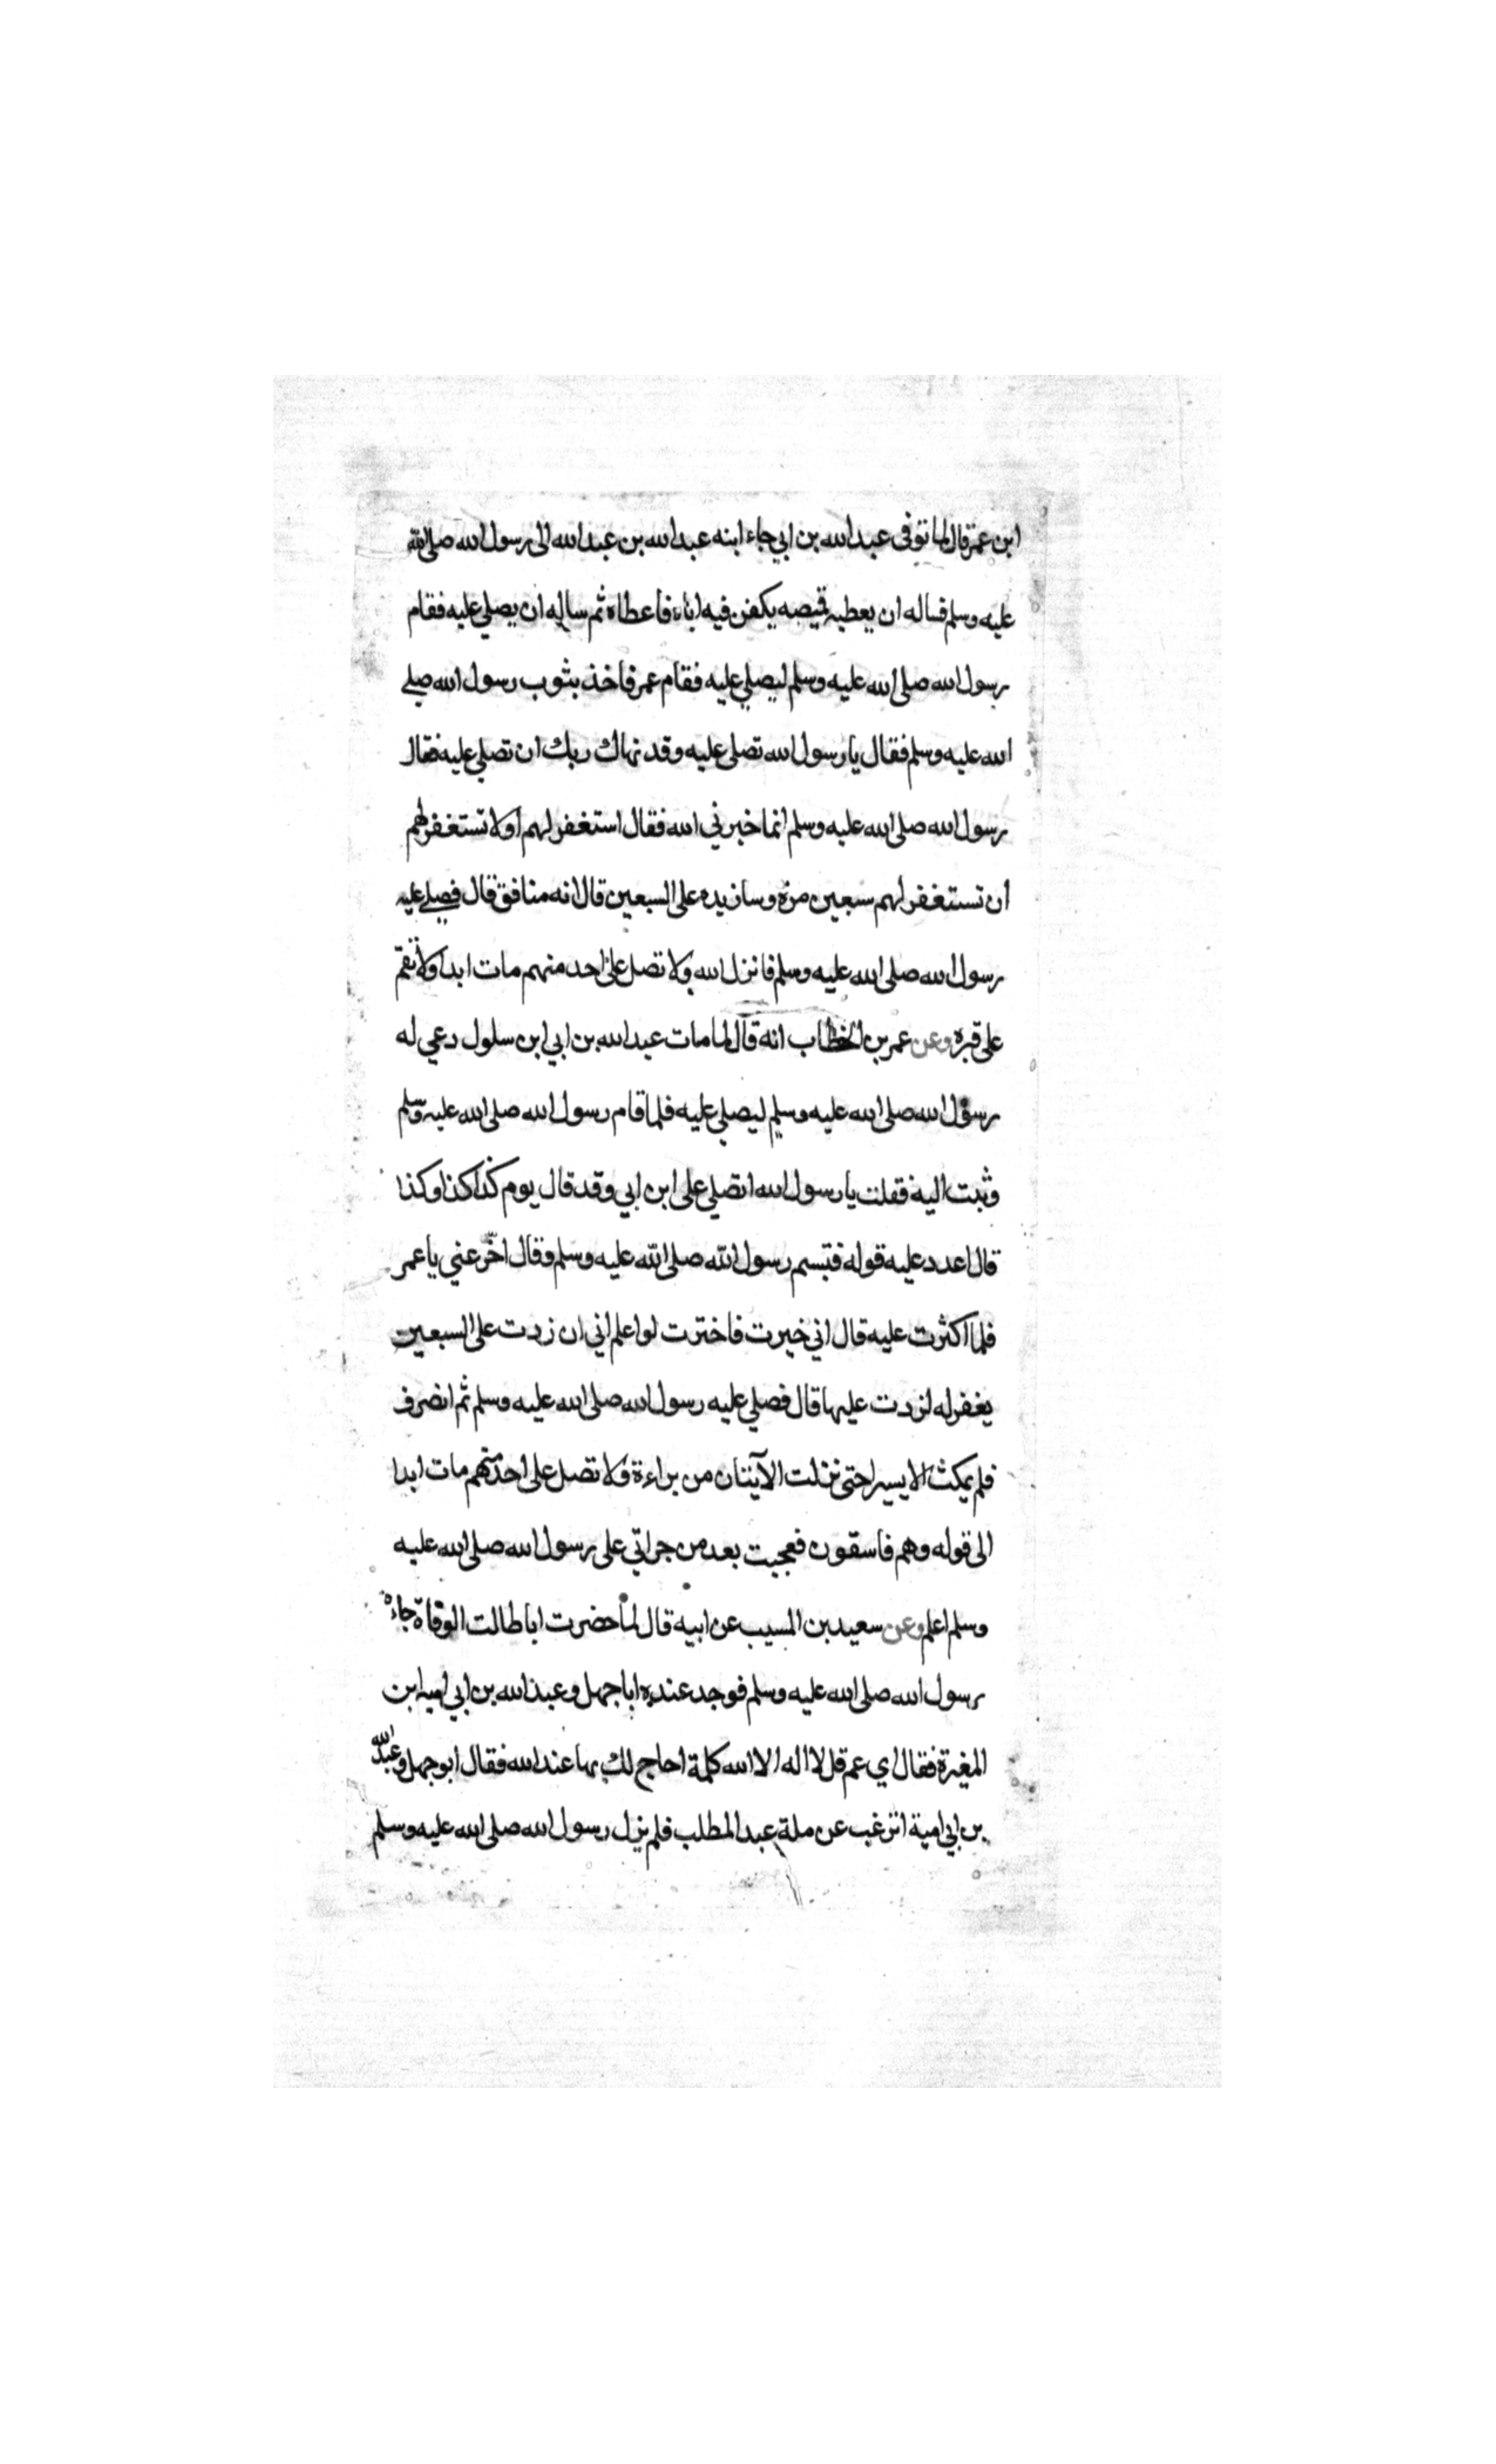 ابن عمر قال لما توفى عبد الله بن ابي جاء ابنه عبد الله بن عبد الله الى رسول الله صلى الله
عليه وسلم فساله ان يعطيه قميصه يكفن فيه اباه فاعطاه ثم ساله ان يصلي عليه فقام
رسول الله صلى الله عليه وسلم ليصلي عليه فقام عمر فاخذ بثوب رسول الله صلى
الله عليه وسلم فقال يا رسول الله تصلى عليه وقد نهاك ربك ان تصلي عليه فقال
رسول الله صلى الله عليه وسلم انما خيرني الله فقال استغفر لهم او لا تستغفر لهم
ان تستغفر لهم سبعين مرة وسازيده على السبعين قال انه منافق قال فصلى عليه
رسول الله صلى الله عليه وسلم فانزل الله ولا تصل على احد منهم مات ابدا ولا تقم
على قبره وعن عمر بن الخطاب انه قال لما مات عبد الله بن ابي ابن سلول دعي له
رسول الله صلى الله عليه وسلم ليصلي عليه فلما قام رسول الله صلى الله عليه وسلم
وثبت اليه فقلت يا رسول الله اتصلي على ابن ابي وقد قال يوم كذا كذا وكذا
قال اعدد عليه قوله فتبسم رسول الله صلى الله عليه وسلم وقال اخّر عني يا عمر
فلما اكثرت عليه قال اني خيرت فاخترت لو اعلم اني ان زدت على السبعين
يغفر له لزدت عليها قال فصلي عليه رسول الله صلى الله عليه وسلم ثم انصرف
فلم يمكث الا يسيرا حتى نزلت الآيتان من براءة ولا تصل على احد منهم مات ابدا
الى قوله وهم فاسقون فعجبت بعد من جراتي على رسول الله صلى الله عليه
وسلم اعلم وعن سعيد بن المسيب عن ابيه قال لما حضرت ابا طالت الوفاة جاءه
رسول الله صلى الله عليه وسلم فوجد عنده ابا جهل وعبد الله بن ابي اميه ابن
المغيرة فقال اي عم قل لا اله الا الله كلمة احاج لك بها عند الله فقال ابو جهل وعبد الله
بن ابي امية اترغب عن ملة عبد المطلب فلم يزل رسول الله صلى الله عليه وسلم